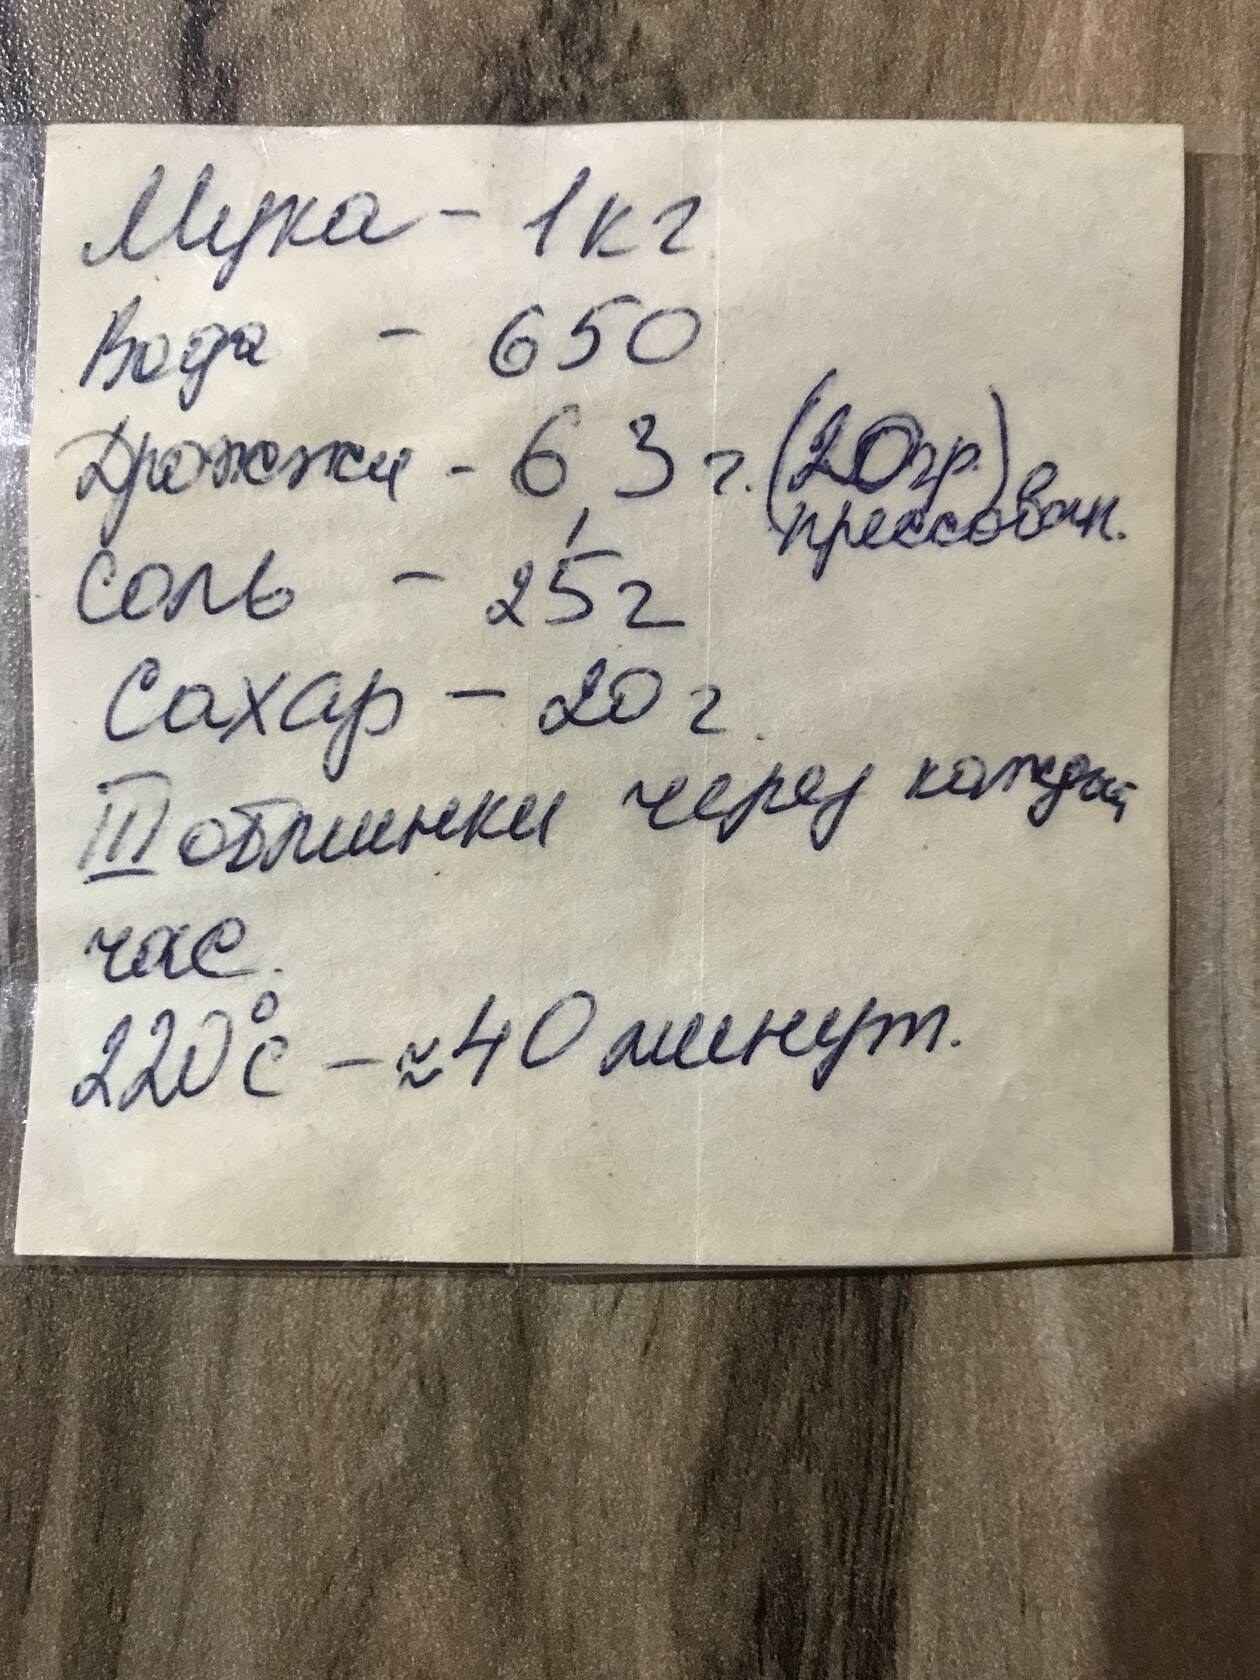 Мука - 1кг
Вода - 650
Дрожжи - 6,3 г. (20гр.)
прессован.
Соль - 25г
Сахар - 20 г.
III обминки через каждый
час.
220°С - ≈40 минут.